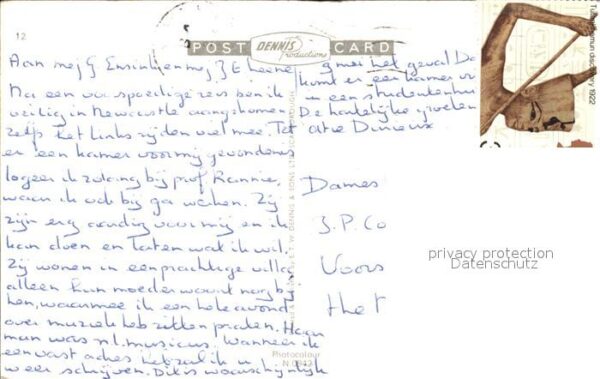 12
POST DENNIS Productions CARD
Tutankhamun discovery 1922
Aan mej
Na een voorspoedige reis ben ik
veilig in Newcastle aangekomen
zelfs het links rijden viel mee. Tot
er een kamer voor mij gevonden is
logeer ik zolang bij prof Rannie,
waar ik ook bij ga werken. Zij
zijn erg aardig voor mij en ik
kan doen en laten wat ik wil.
Zij wonen in een prachtige villa
alleen hun moeder woont nog bij
hen, waarmee ik een hele avond
over muziek heb zitten praten. Haar
man was nl. musicus. Wanneer ik
een vast adres heb zal ik u
weer schrijven. Dit is waarschijnlijk
geval
komt er een kamer
in een studentenhuis
De hartelijke groeten
Dames
J.P. Co
Voors
the
Photocolour
privacy protection
Datenschutz